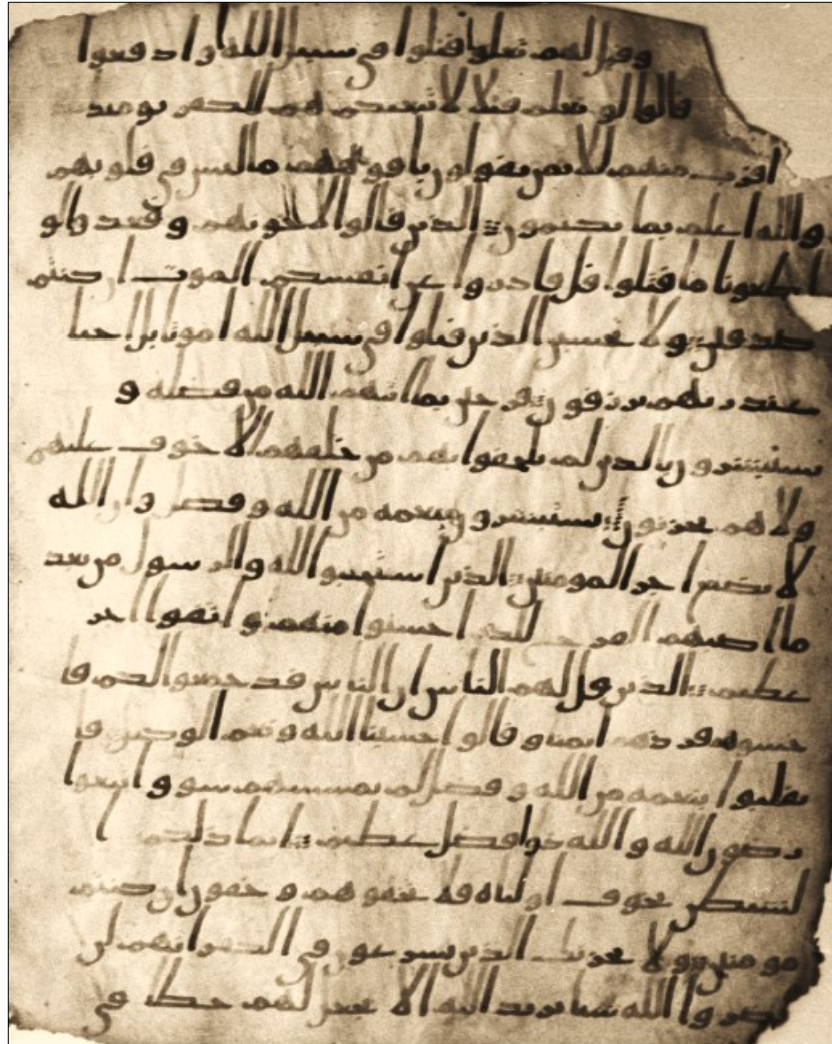 وقيل لهم تعلوا قتلوا في سبيل الله او ادفعوا
قالوا لو نعلم قتلا لا تبعنكم هم للكفر يومئذ
اقرب منهم للايمن يقولون بافوههم ما ليس في قلوبهم
والله اعلم بما يكتمون الذين قالوا لاخونهم وقعدوا لو
اطعونا ما قتلوا قل فادروا عن انفسكم الموت ان كنتم
صدقين ولا تحسبن الذين قتلوا في سبيل الله اموتا بل احيا
عند ربهم يرزقون فرحين بما اتهم الله من فضله و
يستبشرون بالذين لم يلحقوا بهم من خلفهم الا خوف عليهم
ولا هم يحزنون يستبشرون بنعمه من الله وفضل وان الله
لا يضيع اجر المومنين الذين استجبوا لله والرسول من بعد
ما اصبهم القرح للذين احسنوا منهم واتقوا اجر
عظيم الذين قل لهم الناس ان الناس قد جمعوا لكم فا
خشوهم فزدهم ايمنا وقالوا حسبنا الله ونعم الوكيل فا
نقلبوا بنعمه من الله وفضل لم يمسسهم سو واتبعوا
رضون الله والله ذوا فضل عظيم انما ذلكم ا
لشيطن يخوف اولياه فلا تخفوهم وخفون ان كنتم
مومنين ولا يحزنك الذين يسرعون في الكفر انهم لن
يضروا الله شيا يريد الله الا يجعل لهم حظا في